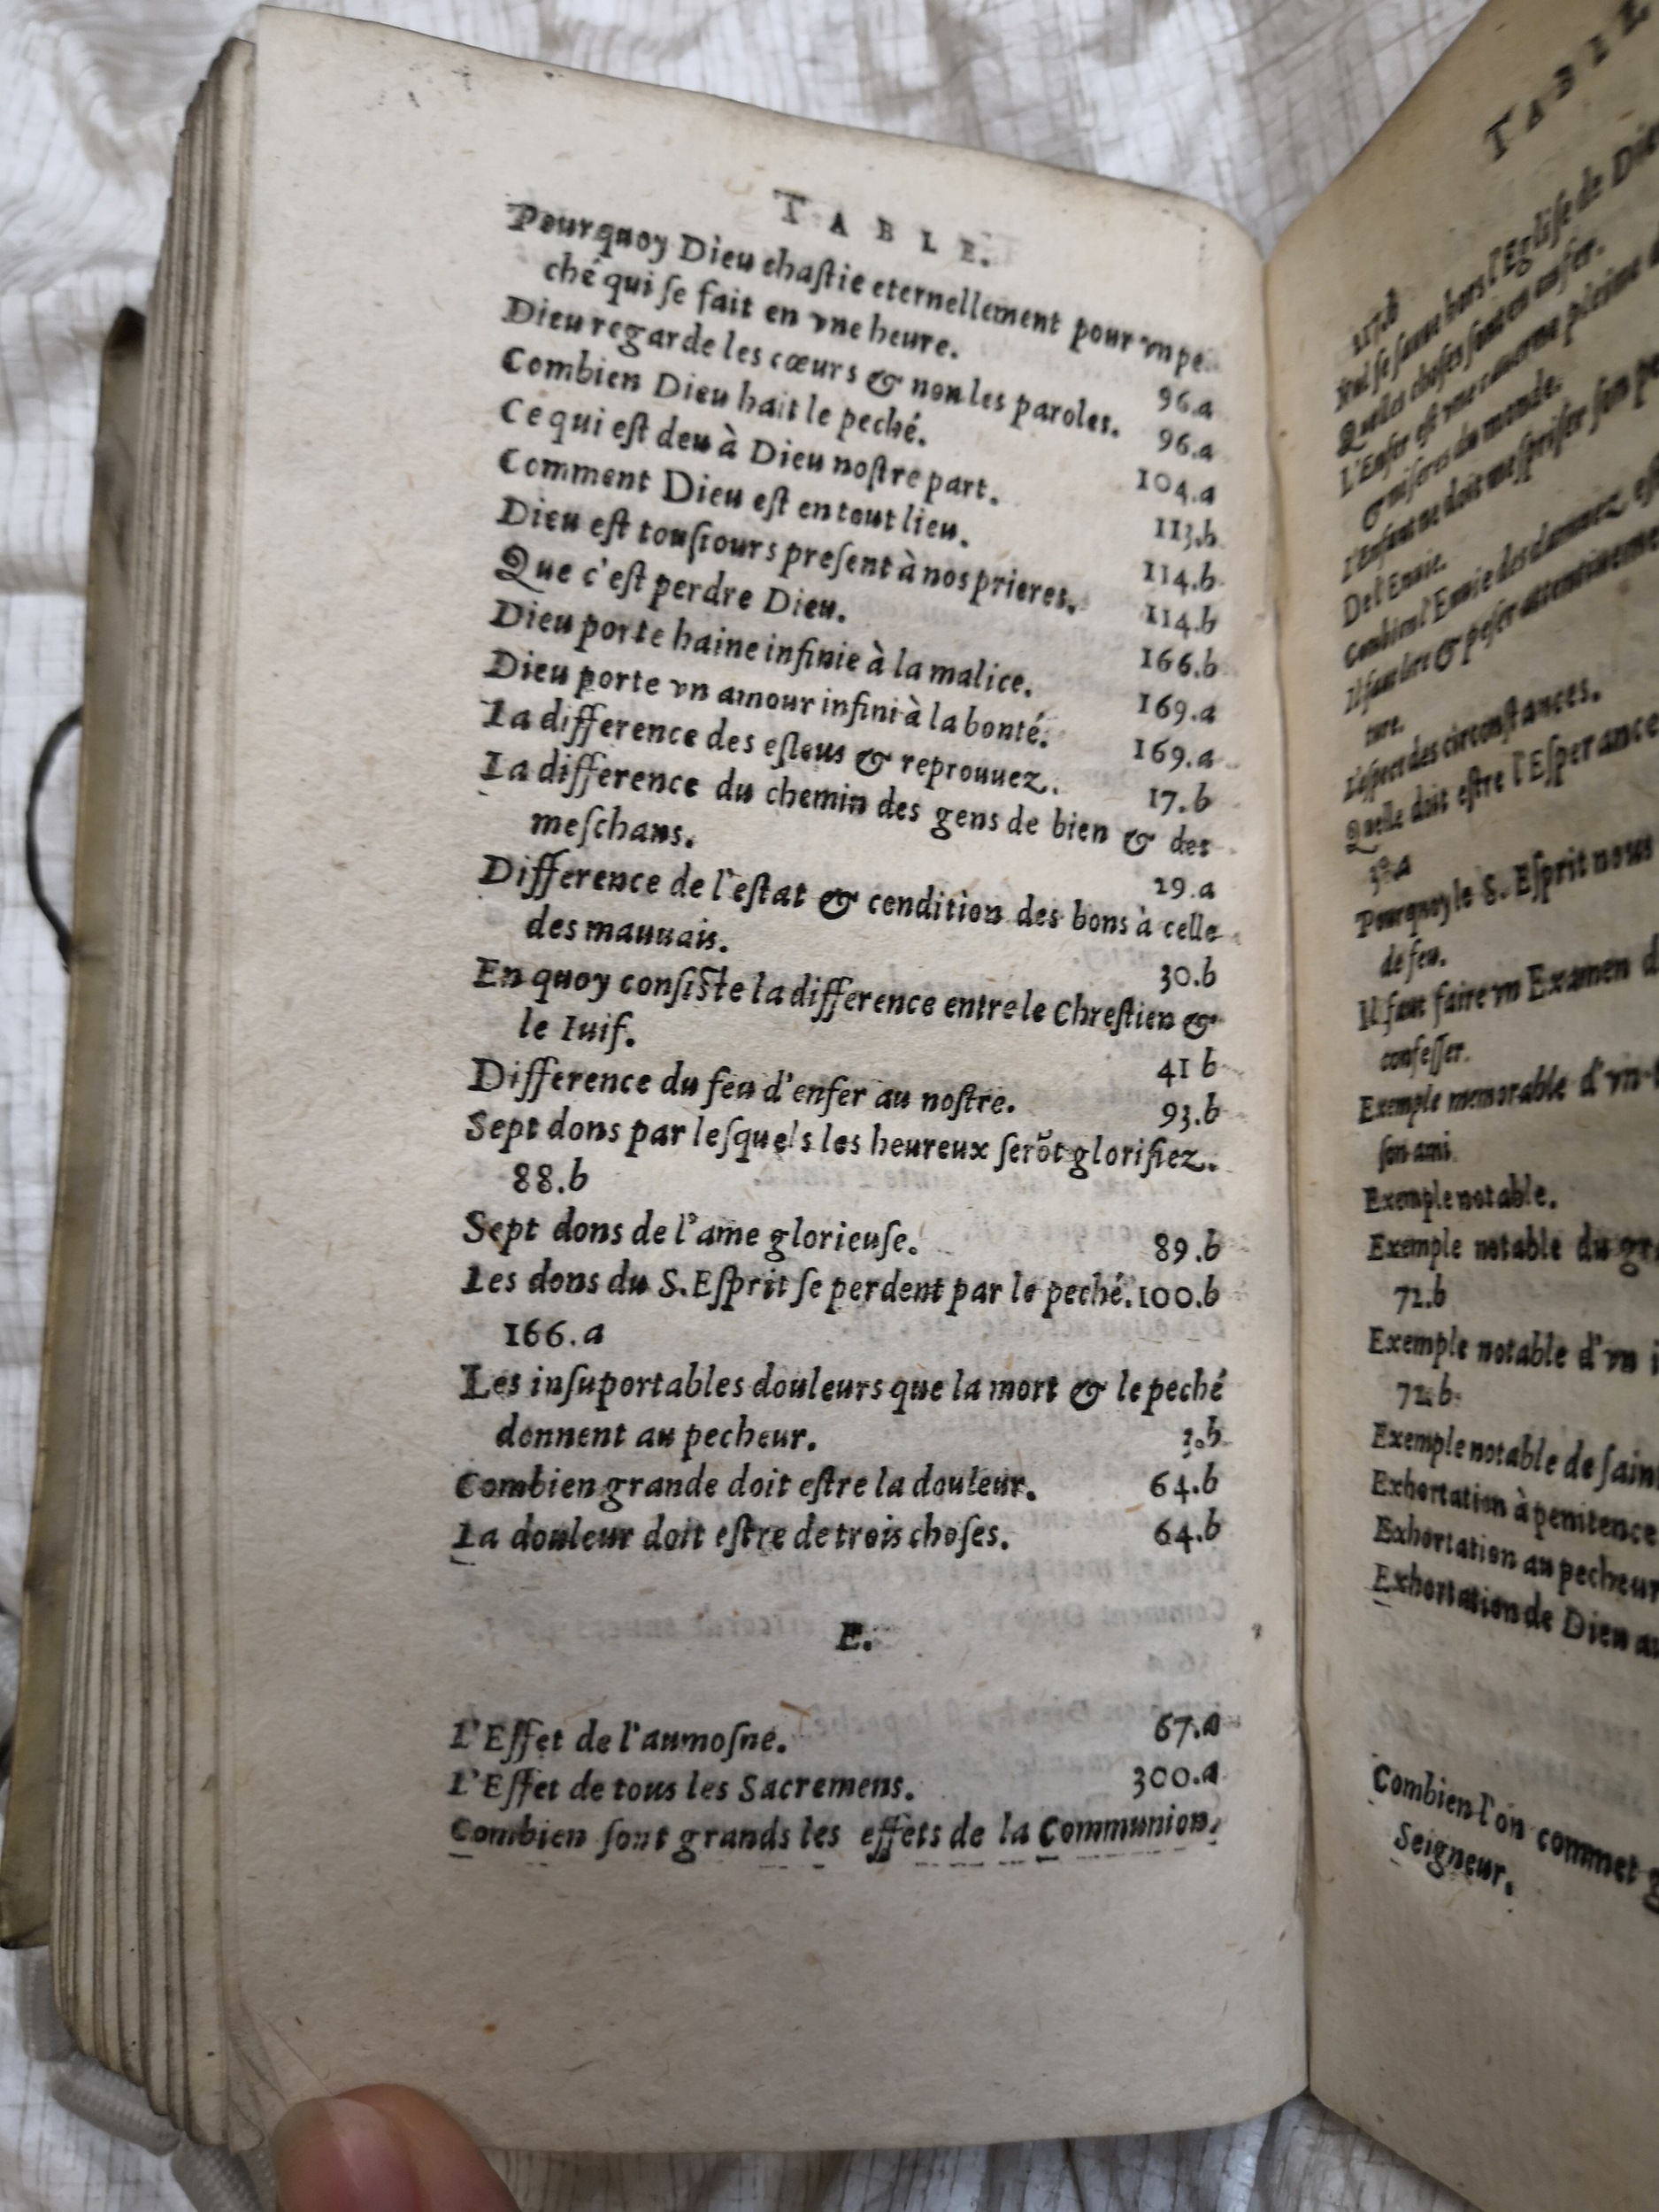 TABLE.
Pourquoy Dieu chaſtie eternellement pour vn pe-
ché qui ſe fait en vne heure. 96.a
Dieu regarde les cœurs & non les paroles. 96.a
Combien Dieu hait le peché. 104.a
Ce qui eſt deu à Dieu noſtre part. 113.b
Comment Dieu eſt en tout lieu. 114.b
Dieu eſt touſiours preſent à nos prieres. 114.b
Que c'eſt perdre Dieu. 166.b
Dieu porte haine infinie à la malice. 169.a
Dieu porte vn amour infini à la bonté. 169.a
La difference des eſleus & reprouuez. 17.b
La difference du chemin des gens de bien & des
meſchans. 29.a
Difference de l'eſtat & condition des bons à celle
des mauuais. 30.b
En quoy conſiſte la difference entre le Chreſtien &
le Iuif. 41 b
Difference du feu d'enfer au noſtre. 93.b
Sept dons par leſquels les heureux ſerõt glorifiez.
88.b
Sept dons de l'ame glorieuſe. 89.b
Les dons du S. Eſprit ſe perdent par le peché. 100.b
166.a
Les inſuportables douleurs que la mort & le peché
donnent au pecheur.
Combien grande doit eſtre la douleur. 64.b
La douleur doit eſtre de trois choſes. 64.b
E.
L'Effet de l'aumoſne. 67.a
L'Effet de tous les Sacremens. 300.a
Combien ſont grands les effets de la Communion.
TABLE
117.b
Nul ſe ſauue hors l'Egliſe de Dieu
Quelles choſes ſont en enfer.
L'Enfer eſt vne cauerne pleine
& miſeres du monde.
L'Enfant ne doit meſpriſer ſon
De l'Enuie.
Combien l'Enuie des damnez
Il faut lire & peſer attentiueme
ture.
L'eſpece des circonſtances.
Quelle doit eſtre l'Eſperance
Pourquoy le S. Eſprit nous
de feu.
Il faut faire vn Examen
confeſſer.
Exemple memorable d'vn
ſon ami.
Exemple notable.
Exemple notable du gr
72.b
Exemple notable d'vn
72.b.
Exemple notable de ſain
Exhortation à penitence
Exhortation au pecheur
Exhortation de Dieu au
Combien l'on commet
Seigneur.